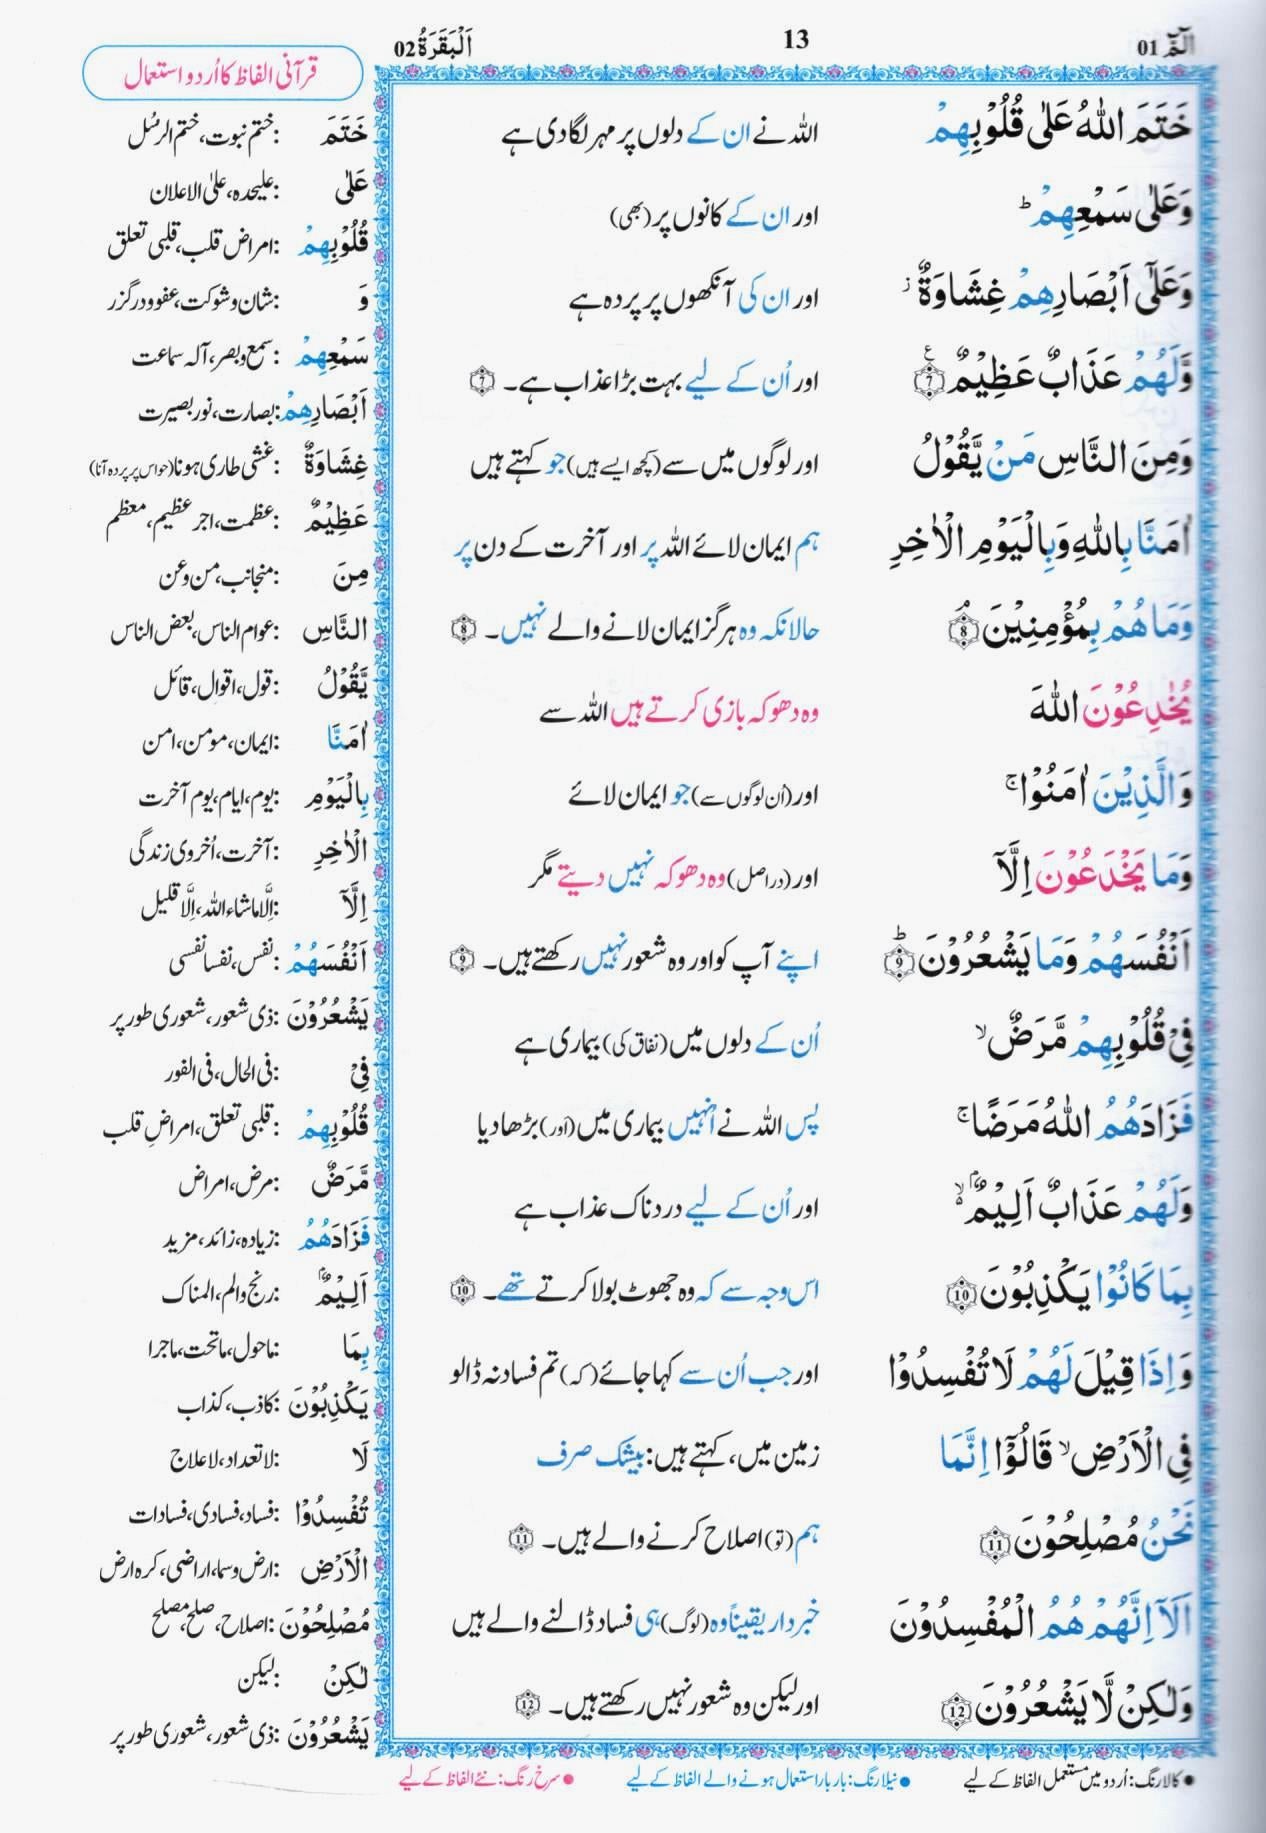 الٓمّٓ 01
13
اَلْبَقَرَةُ 02
خَتَمَ اللّٰهُ عَلٰى قُلُوْبِهِمْ
اللہ نے ان کے دلوں پر مہر لگا دی ہے
وَعَلٰى سَمْعِهِمْ ؕ
اور ان کے کانوں پر (بھی)
وَعَلٰٓى اَبْصَارِهِمْ غِشَاوَةٌ ز
اور ان کی آنکھوں پر پردہ ہے
وَّلَهُمْ عَذَابٌ عَظِيْمٌ 7 ع
اور اُن کے لیے بہت بڑا عذاب ہے۔ 7
وَمِنَ النَّاسِ مَنْ يَّقُوْلُ
اور لوگوں میں سے (کچھ ایسے ہیں) جو کہتے ہیں
اٰمَنَّا بِاللّٰهِ وَبِالْيَوْمِ الْاٰخِرِ
ہم ایمان لائے اللہ پر اور آخرت کے دن پر
وَمَا هُمْ بِمُؤْمِنِيْنَ ۘ 8
حالانکہ وہ ہرگز ایمان لانے والے نہیں۔ 8
يُخٰدِعُوْنَ اللّٰهَ
وہ دھوکہ بازی کرتے ہیں اللہ سے
وَالَّذِيْنَ اٰمَنُوْا ۚ
اور (اُن لوگوں سے) جو ایمان لائے
وَمَا يَخْدَعُوْنَ اِلَّآ
اور (دراصل) وہ دھوکہ نہیں دیتے مگر
اَنْفُسَهُمْ وَمَا يَشْعُرُوْنَ ؕ 9
اپنے آپ کو اور وہ شعور نہیں رکھتے ہیں۔ 9
فِيْ قُلُوْبِهِمْ مَّرَضٌ ۙ
اُن کے دلوں میں (نفاق کی) بیماری ہے
فَزَادَهُمُ اللّٰهُ مَرَضًا ۚ
پس اللہ نے اُنہیں بیماری میں (اور) بڑھا دیا
وَلَهُمْ عَذَابٌ اَلِيْمٌۢ ۙ
اور اُن کے لیے دردناک عذاب ہے
بِمَا كَانُوْا يَكْذِبُوْنَ 10
اس وجہ سے کہ وہ جھوٹ بولا کرتے تھے۔ 10
وَاِذَا قِيْلَ لَهُمْ لَا تُفْسِدُوْا
اور جب اُن سے کہا جائے (کہ) تم فساد نہ ڈالو
فِي الْاَرْضِ ۙ قَالُوْٓا اِنَّمَا
زمین میں، کہتے ہیں: بیشک صرف
نَحْنُ مُصْلِحُوْنَ 11
ہم (تو) اصلاح کرنے والے ہیں۔ 11
اَلَآ اِنَّهُمْ هُمُ الْمُفْسِدُوْنَ
خبردار یقیناً وہ (لوگ) ہی فساد ڈالنے والے ہیں
وَلٰكِنْ لَّا يَشْعُرُوْنَ 12
اور لیکن وہ شعور نہیں رکھتے ہیں۔ 12
قرآنی الفاظ کا اُردو استعمال
خَتَمَ : ختم نبوت، ختم الرسُل
عَلٰى : علیحدہ، علی الاعلان
قُلُوْبِهِمْ : امراض قلب، قلبی تعلق
وَ : شان و شوکت، عفو و درگزر
سَمْعِهِمْ : سمع و بصر، آلہ سماعت
اَبْصَارِهِمْ : بصارت، نور بصیرت
غِشَاوَةٌ : غشی طاری ہونا (حواس پر پردہ آنا)
عَظِيْمٌ : عظمت، اجر عظیم، معظم
مِنَ : منجانب، من و عن
النَّاسِ : عوام الناس، بعض الناس
يَّقُوْلُ : قول، اقوال، قائل
اٰمَنَّا : ایمان، مومن، امن
بِالْيَوْمِ : یوم، ایام، یوم آخرت
الْاٰخِرِ : آخرت، اُخروی زندگی
اِلَّآ : اِلّا ماشاء اللہ، اِلّا قلیل
اَنْفُسَهُمْ : نفس، نفسا نفسی
يَشْعُرُوْنَ : ذی شعور، شعوری طور پر
فِيْ : فی الحال، فی الفور
قُلُوْبِهِمْ : قلبی تعلق، امراضِ قلب
مَّرَضٌ : مرض، امراض
فَزَادَهُمُ : زیادہ، زائد، مزید
اَلِيْمٌۢ : رنج و الم، المناک
بِمَا : ماحول، ماتحت، ماجرا
يَكْذِبُوْنَ : کاذب، کذاب
لَا : لاتعداد، لاعلاج
تُفْسِدُوْا : فساد، فسادی، فسادات
الْاَرْضِ : ارض و سما، اراضی، کرہ ارض
مُصْلِحُوْنَ : اصلاح، صلح، مصلح
لٰكِنْ : لیکن
يَشْعُرُوْنَ : ذی شعور، شعوری طور پر
● کالا رنگ: اُردو میں مستعمل الفاظ کے لیے
● نیلا رنگ: بار بار استعمال ہونے والے الفاظ کے لیے
● سرخ رنگ: نئے الفاظ کے لیے